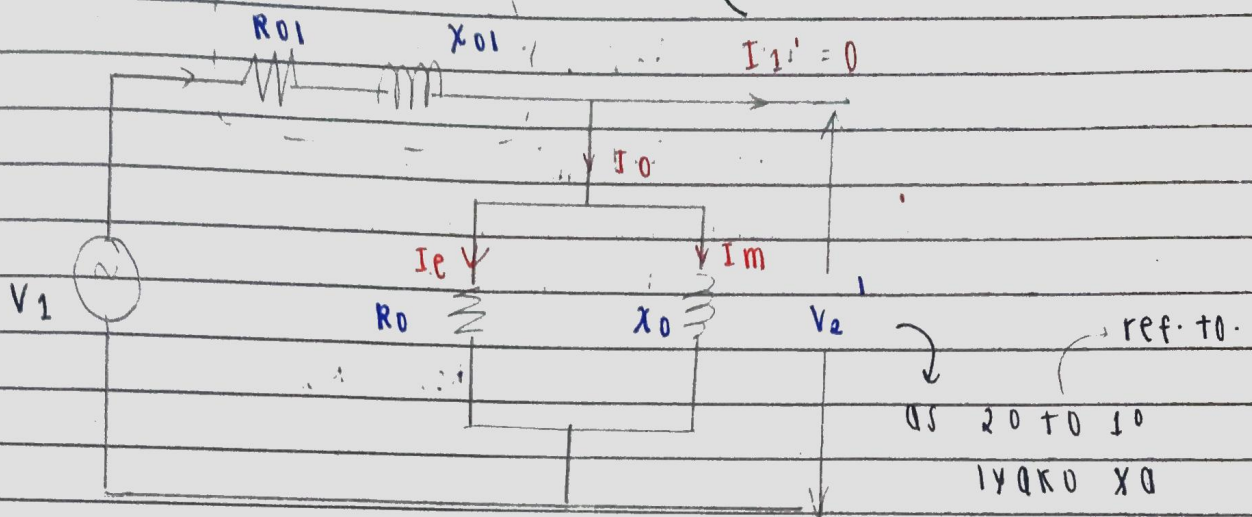 R01 X01 I1' = 0
I0
Ie Im
V1 R0 X0 V2'
ref. to.
as 20 to 10